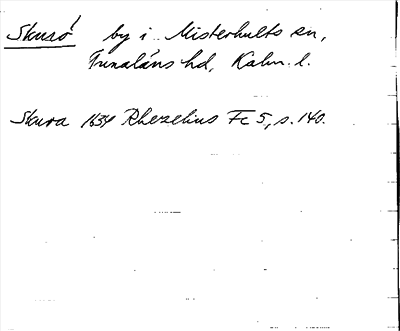 Skurö by i Misterhults sn,
Tunaläns hd, Kalm. l.
Skura 1634 Rhezelius Fc 5, s. 140.